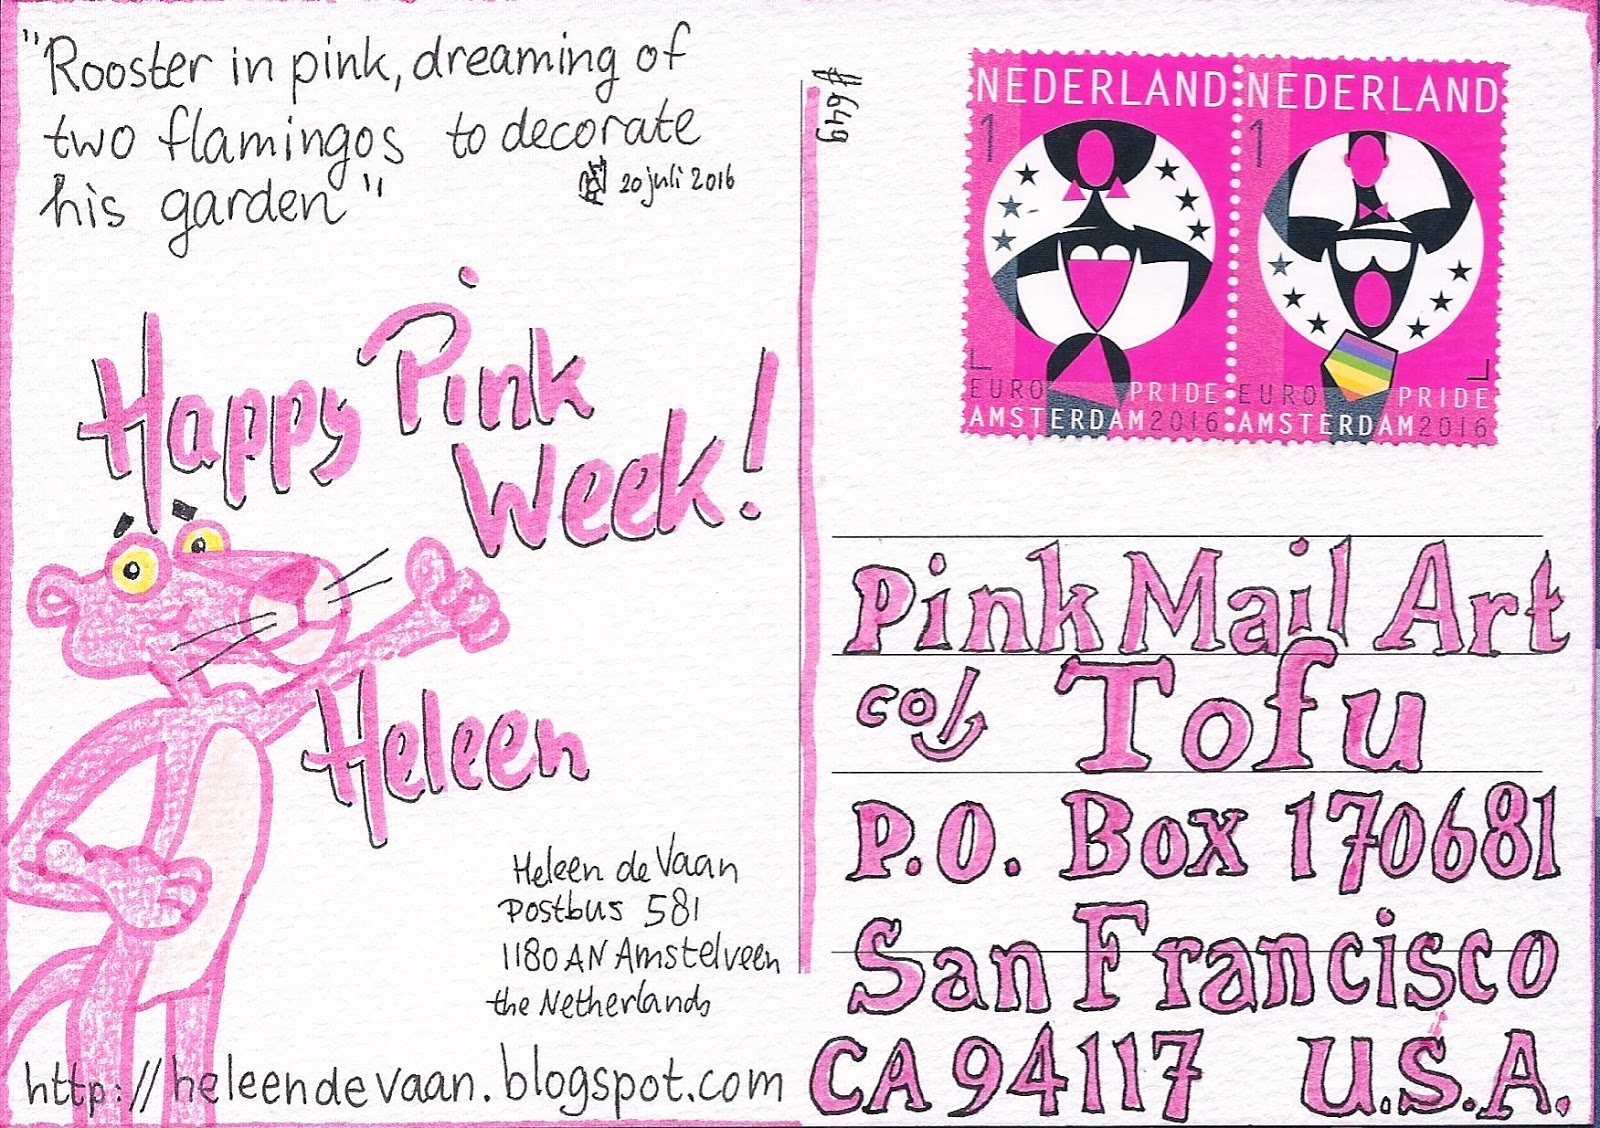 "Rooster in pink, dreaming of
two flamingos to decorate
his garden"
20 juli 2016
Happy Pink
Week!
Heleen
Heleen de Vaan
Postbus 581
1180 AN Amstelveen
the Netherlands
http://heleendevaan.blogspot.com
#649
NEDERLAND
1
EURO PRIDE
AMSTERDAM 2016
NEDERLAND
1
EURO PRIDE
AMSTERDAM 2016
Pink Mail Art
co/
Tofu
P.O. Box 170681
San Francisco
CA 94117 U.S.A.